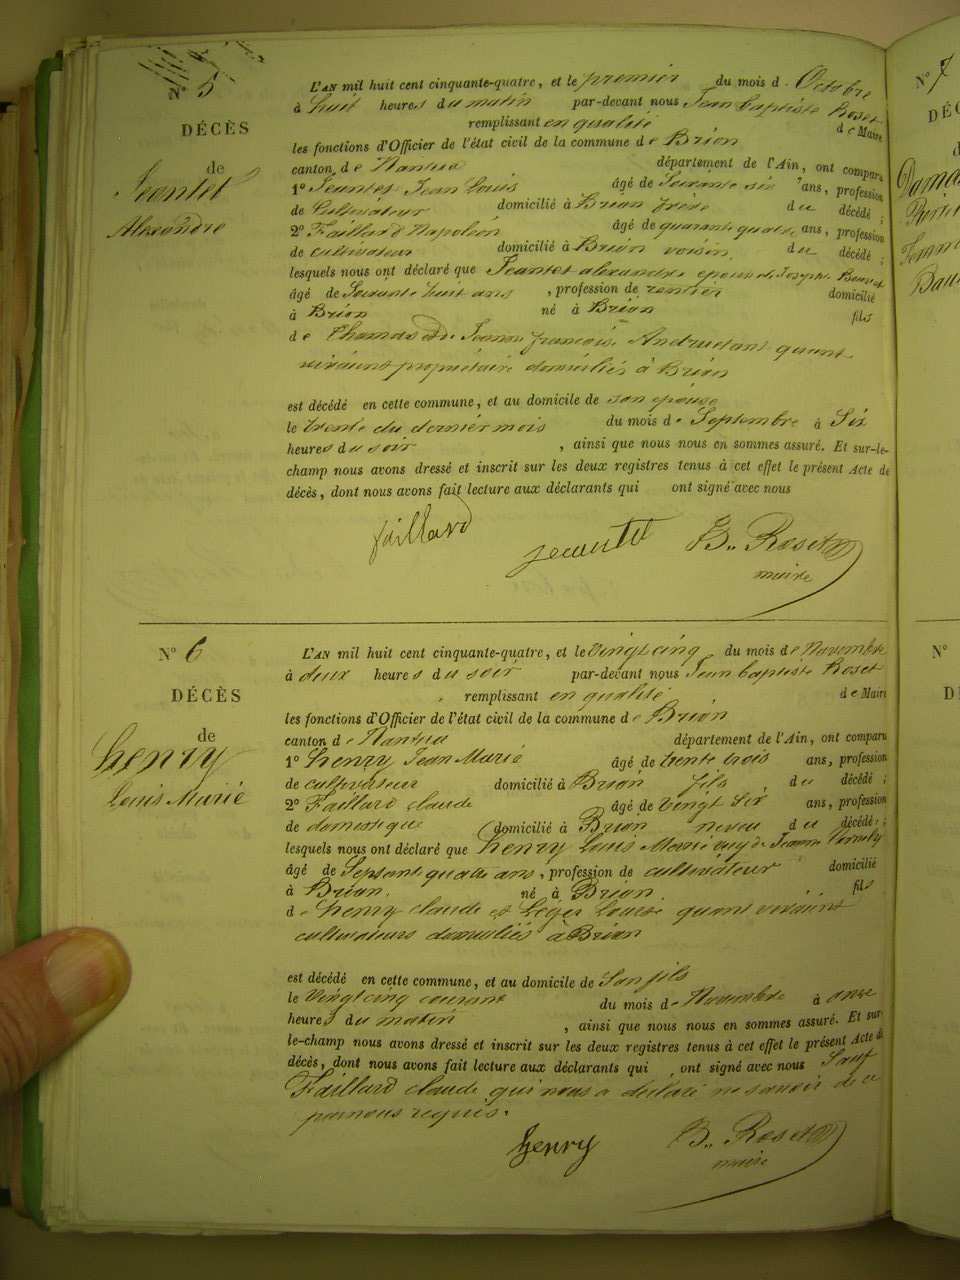 N° 5
DÉCÈS
de
Jeantet
Alexandre
L'AN mil huit cent cinquante-quatre, et le premier du mois d Octobre
à huit heures du matin par-devant nous Jean baptiste Roset
remplissant en qualité de Maire
les fonctions d'Officier de l'état civil de la commune de Brion
canton de Nantua département de l'Ain, ont comparu
1° Jeantet Jean Louis âgé de Soixante six ans, profession
de Cultivateur domicilié à Brion frère du décédé ;
2° Faillard Napoléon âgé de quarante quatre ans, profession
de cultivateur domicilié à Brion voisin du décédé ;
lesquels nous ont déclaré que Jeantet alexandre époux de Josephte
âgé de Soixante huit ans , profession de rentier domicilié
à Brion né à Brion fils
de Thomas et de Jeanne françoise quant
vivaient propriétaire domiciliés à Brion
est décédé en cette commune, et au domicile de son épouse
le trente du dernier mois du mois de Septembre à Six
heures du soir , ainsi que nous nous en sommes assuré. Et sur-le-
champ nous avons dressé et inscrit sur les deux registres tenus à cet effet le présent Acte de
décès, dont nous avons fait lecture aux déclarants qui ont signé avec nous
faillard
jeantet
B. Roset
maire
N° 6
DÉCÈS
de
henry
Louis Marie
L'AN mil huit cent cinquante-quatre, et le vingt cinq du mois de Novembre
à deux heures du soir par-devant nous Jean baptiste Roset
remplissant en qualité de Maire
les fonctions d'Officier de l'état civil de la commune de Brion
canton de Nantua département de l'Ain, ont comparu
1° henry Jean Marie âgé de trente trois ans, profession
de cultivateur domicilié à Brion fils du décédé ;
2° Faillard claude âgé de vingt Six ans, profession
de domestique domicilié à Brion neveu du décédé ;
lesquels nous ont déclaré que henry Louis Marie de Jeanne
âgé de Septante quatre ans , profession de cultivateur domicilié
à Brion né à Brion fils
de henry claude et Leger Louise quant vivaient
cultivateurs domiciliés à Brion
est décédé en cette commune, et au domicile de Son fils
le vingt cinq courant du mois de Novembre à onze
heures du matin , ainsi que nous nous en sommes assuré. Et sur-
le-champ nous avons dressé et inscrit sur les deux registres tenus à cet effet le présent Acte de
décès, dont nous avons fait lecture aux déclarants qui ont signé avec nous Sauf
Faillard claude qui nous a déclaré ne savoir de ce
par nous requis.
henry
B. Roset
maire
N° 7
N°